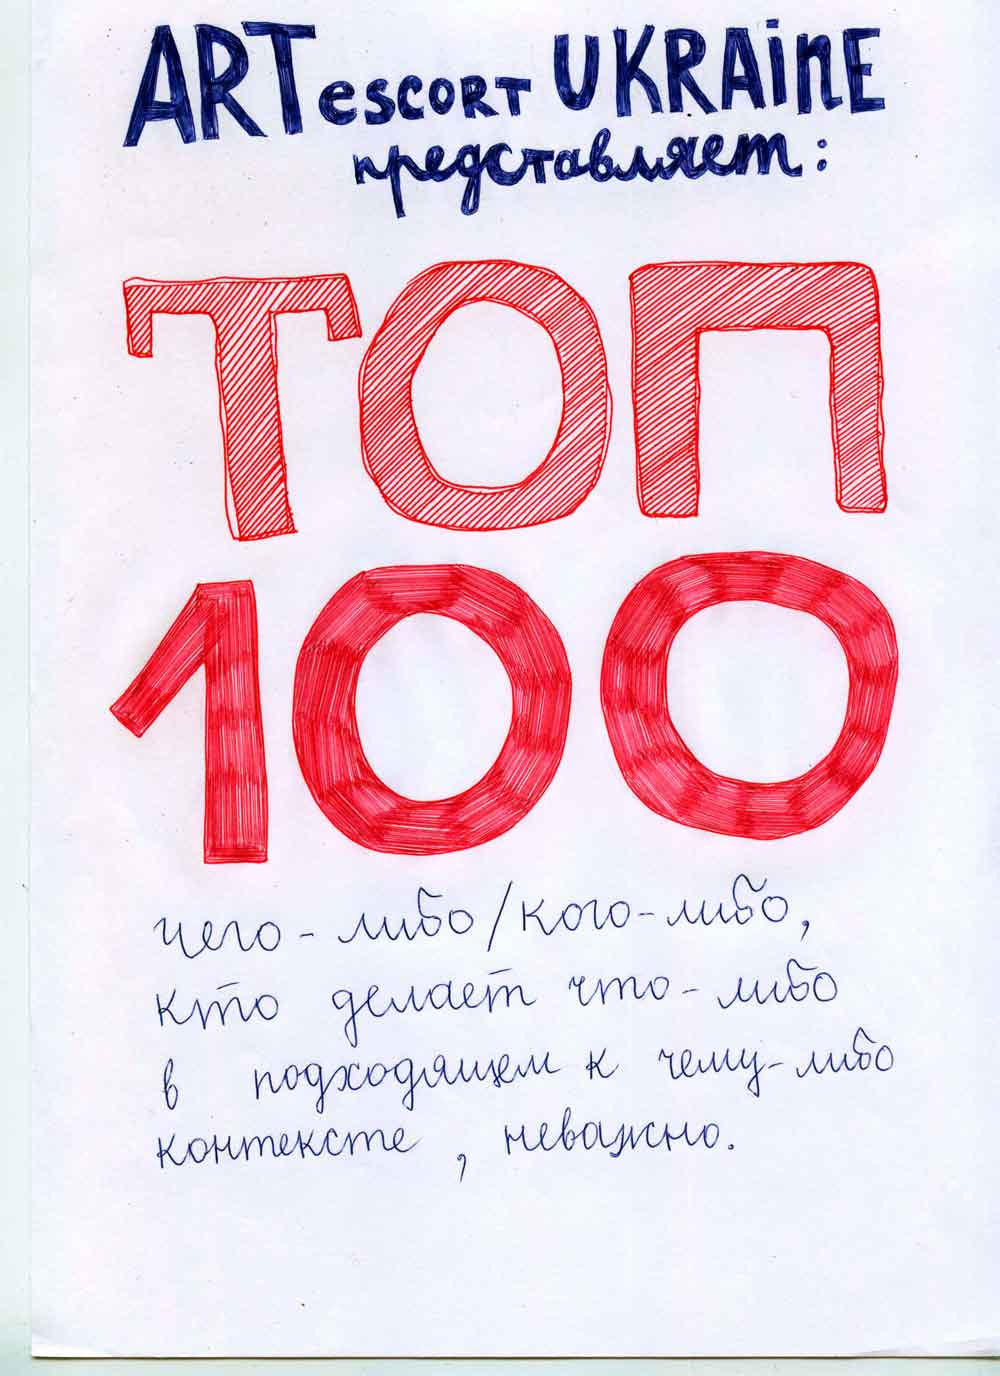 ART escort UKRAINE
представляет:
ТОП
100
чего-либо/кого-либо,
кто делает что-либо
в подходящем к чему-либо
контексте, неважно.